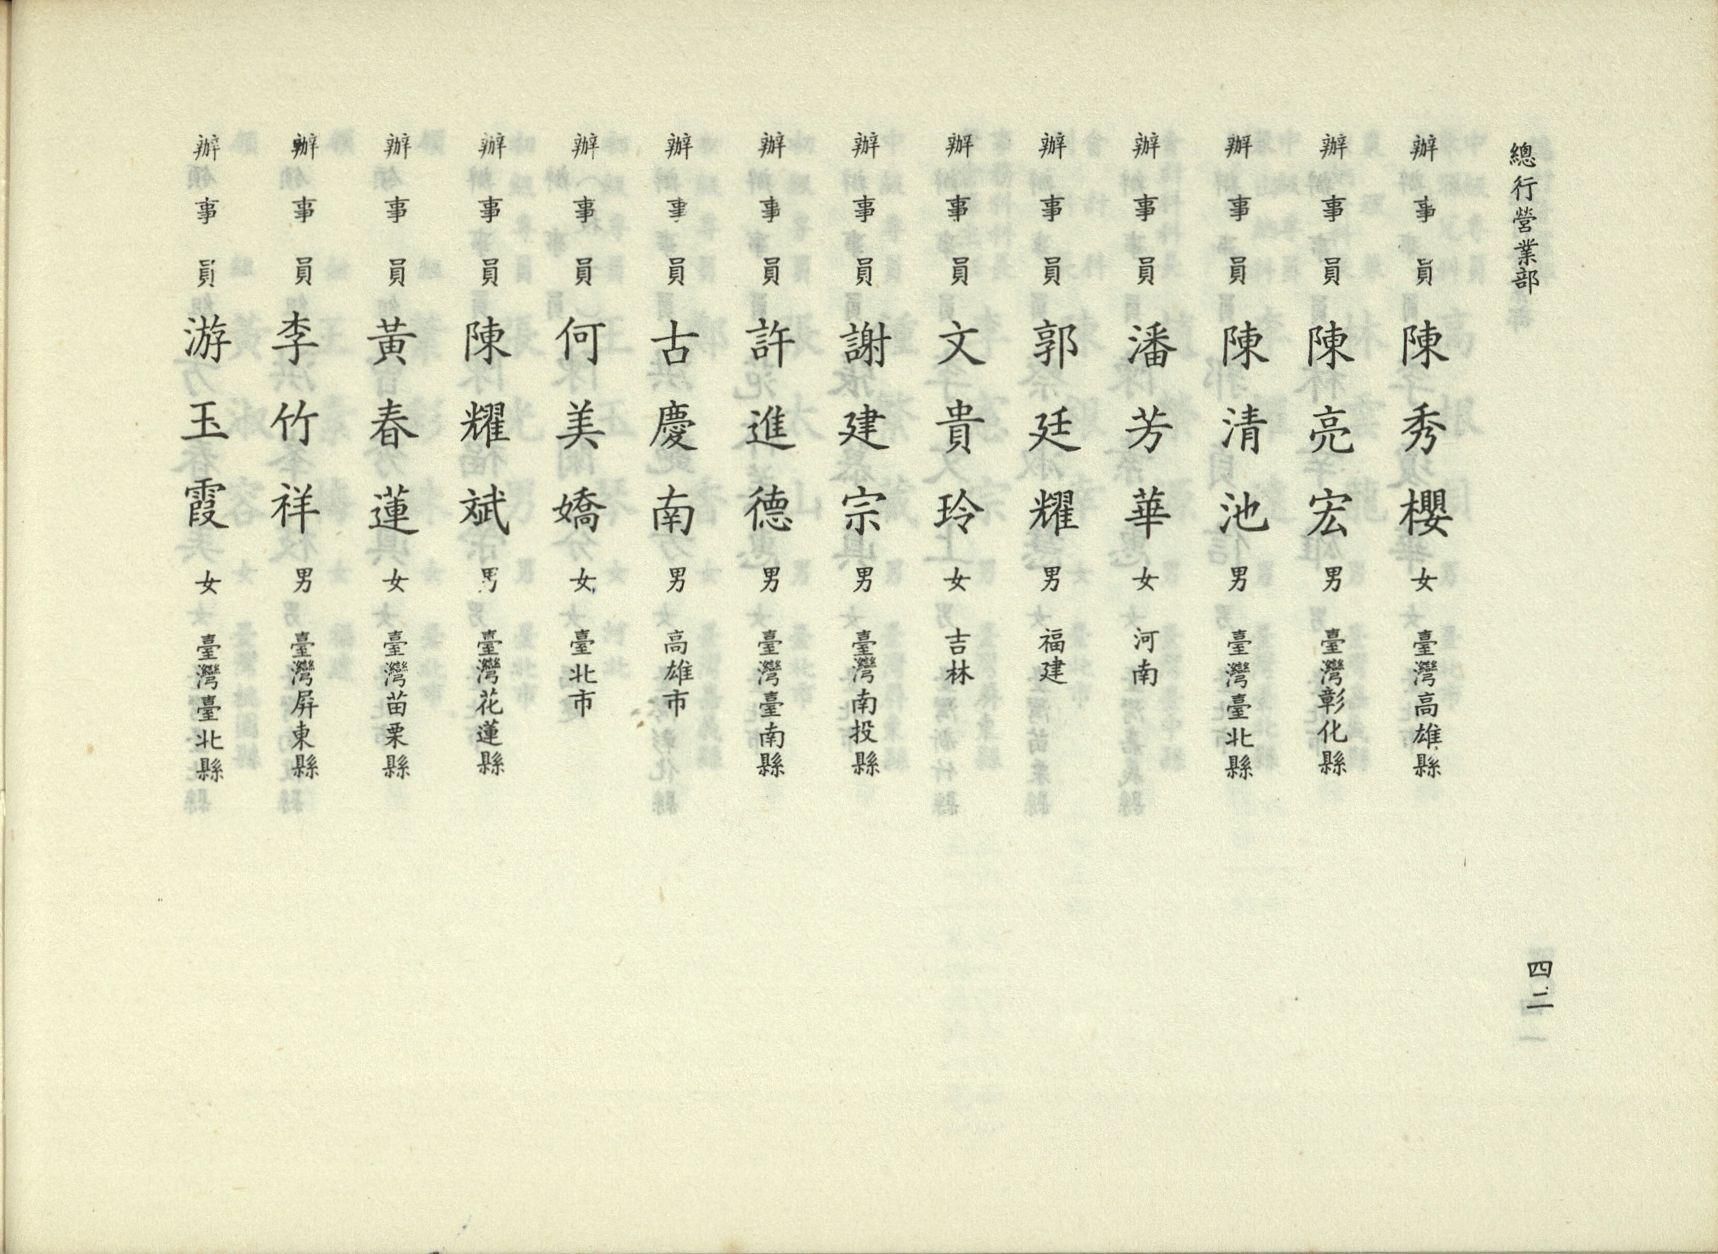 總行營業部
四二
辦事員 陳秀櫻 女 臺灣高雄縣
辦事員 陳亮宏 男 臺灣彰化縣
辦事員 陳清池 男 臺灣臺北縣
辦事員 潘芳華 女 河南
辦事員 郭廷耀 男 福建
辦事員 文貴玲 女 吉林
辦事員 謝建宗 男 臺灣南投縣
辦事員 許進德 男 臺灣臺南縣
辦事員 古慶南 男 高雄市
辦事員 何美嬌 女 臺北市
辦事員 陳耀斌 男 臺灣花蓮縣
辦事員 黃春蓮 女 臺灣苗栗縣
辦事員 李竹祥 男 臺灣屏東縣
辦事員 游玉霞 女 臺灣臺北縣